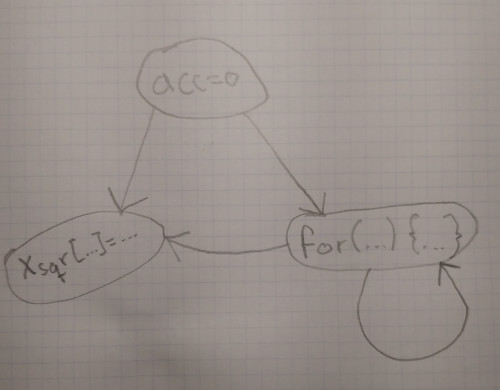 acc=0
xsqr[...]=...
for(...) {...}